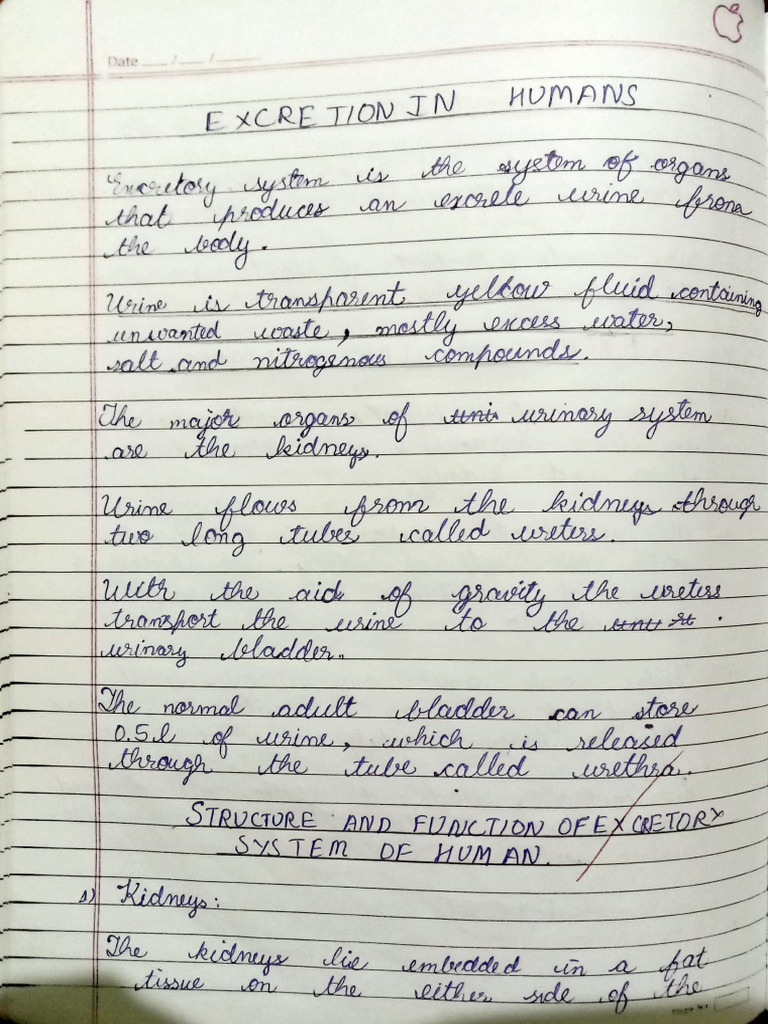 Date ___/___/_____
EXCRETION IN HUMANS
Excretory system is the system of organs
that produces an excrete urine from
the body.
Urine is transparent yellow fluid containing
unwanted waste, mostly excess water,
salt and nitrogenous compounds.
The major organs of urinary system
are the kidneys.
Urine flows from the kidneys through
two long tubes called ureters.
With the aid of gravity the ureters
transport the urine to the
urinary bladder.
The normal adult bladder can store
0.5 l of urine, which is released
through the tube called urethra.
STRUCTURE AND FUNCTION OF EXCRETORY
SYSTEM OF HUMAN.
1) Kidneys:
The kidneys lie embedded in a fat
tissue on the either side of the